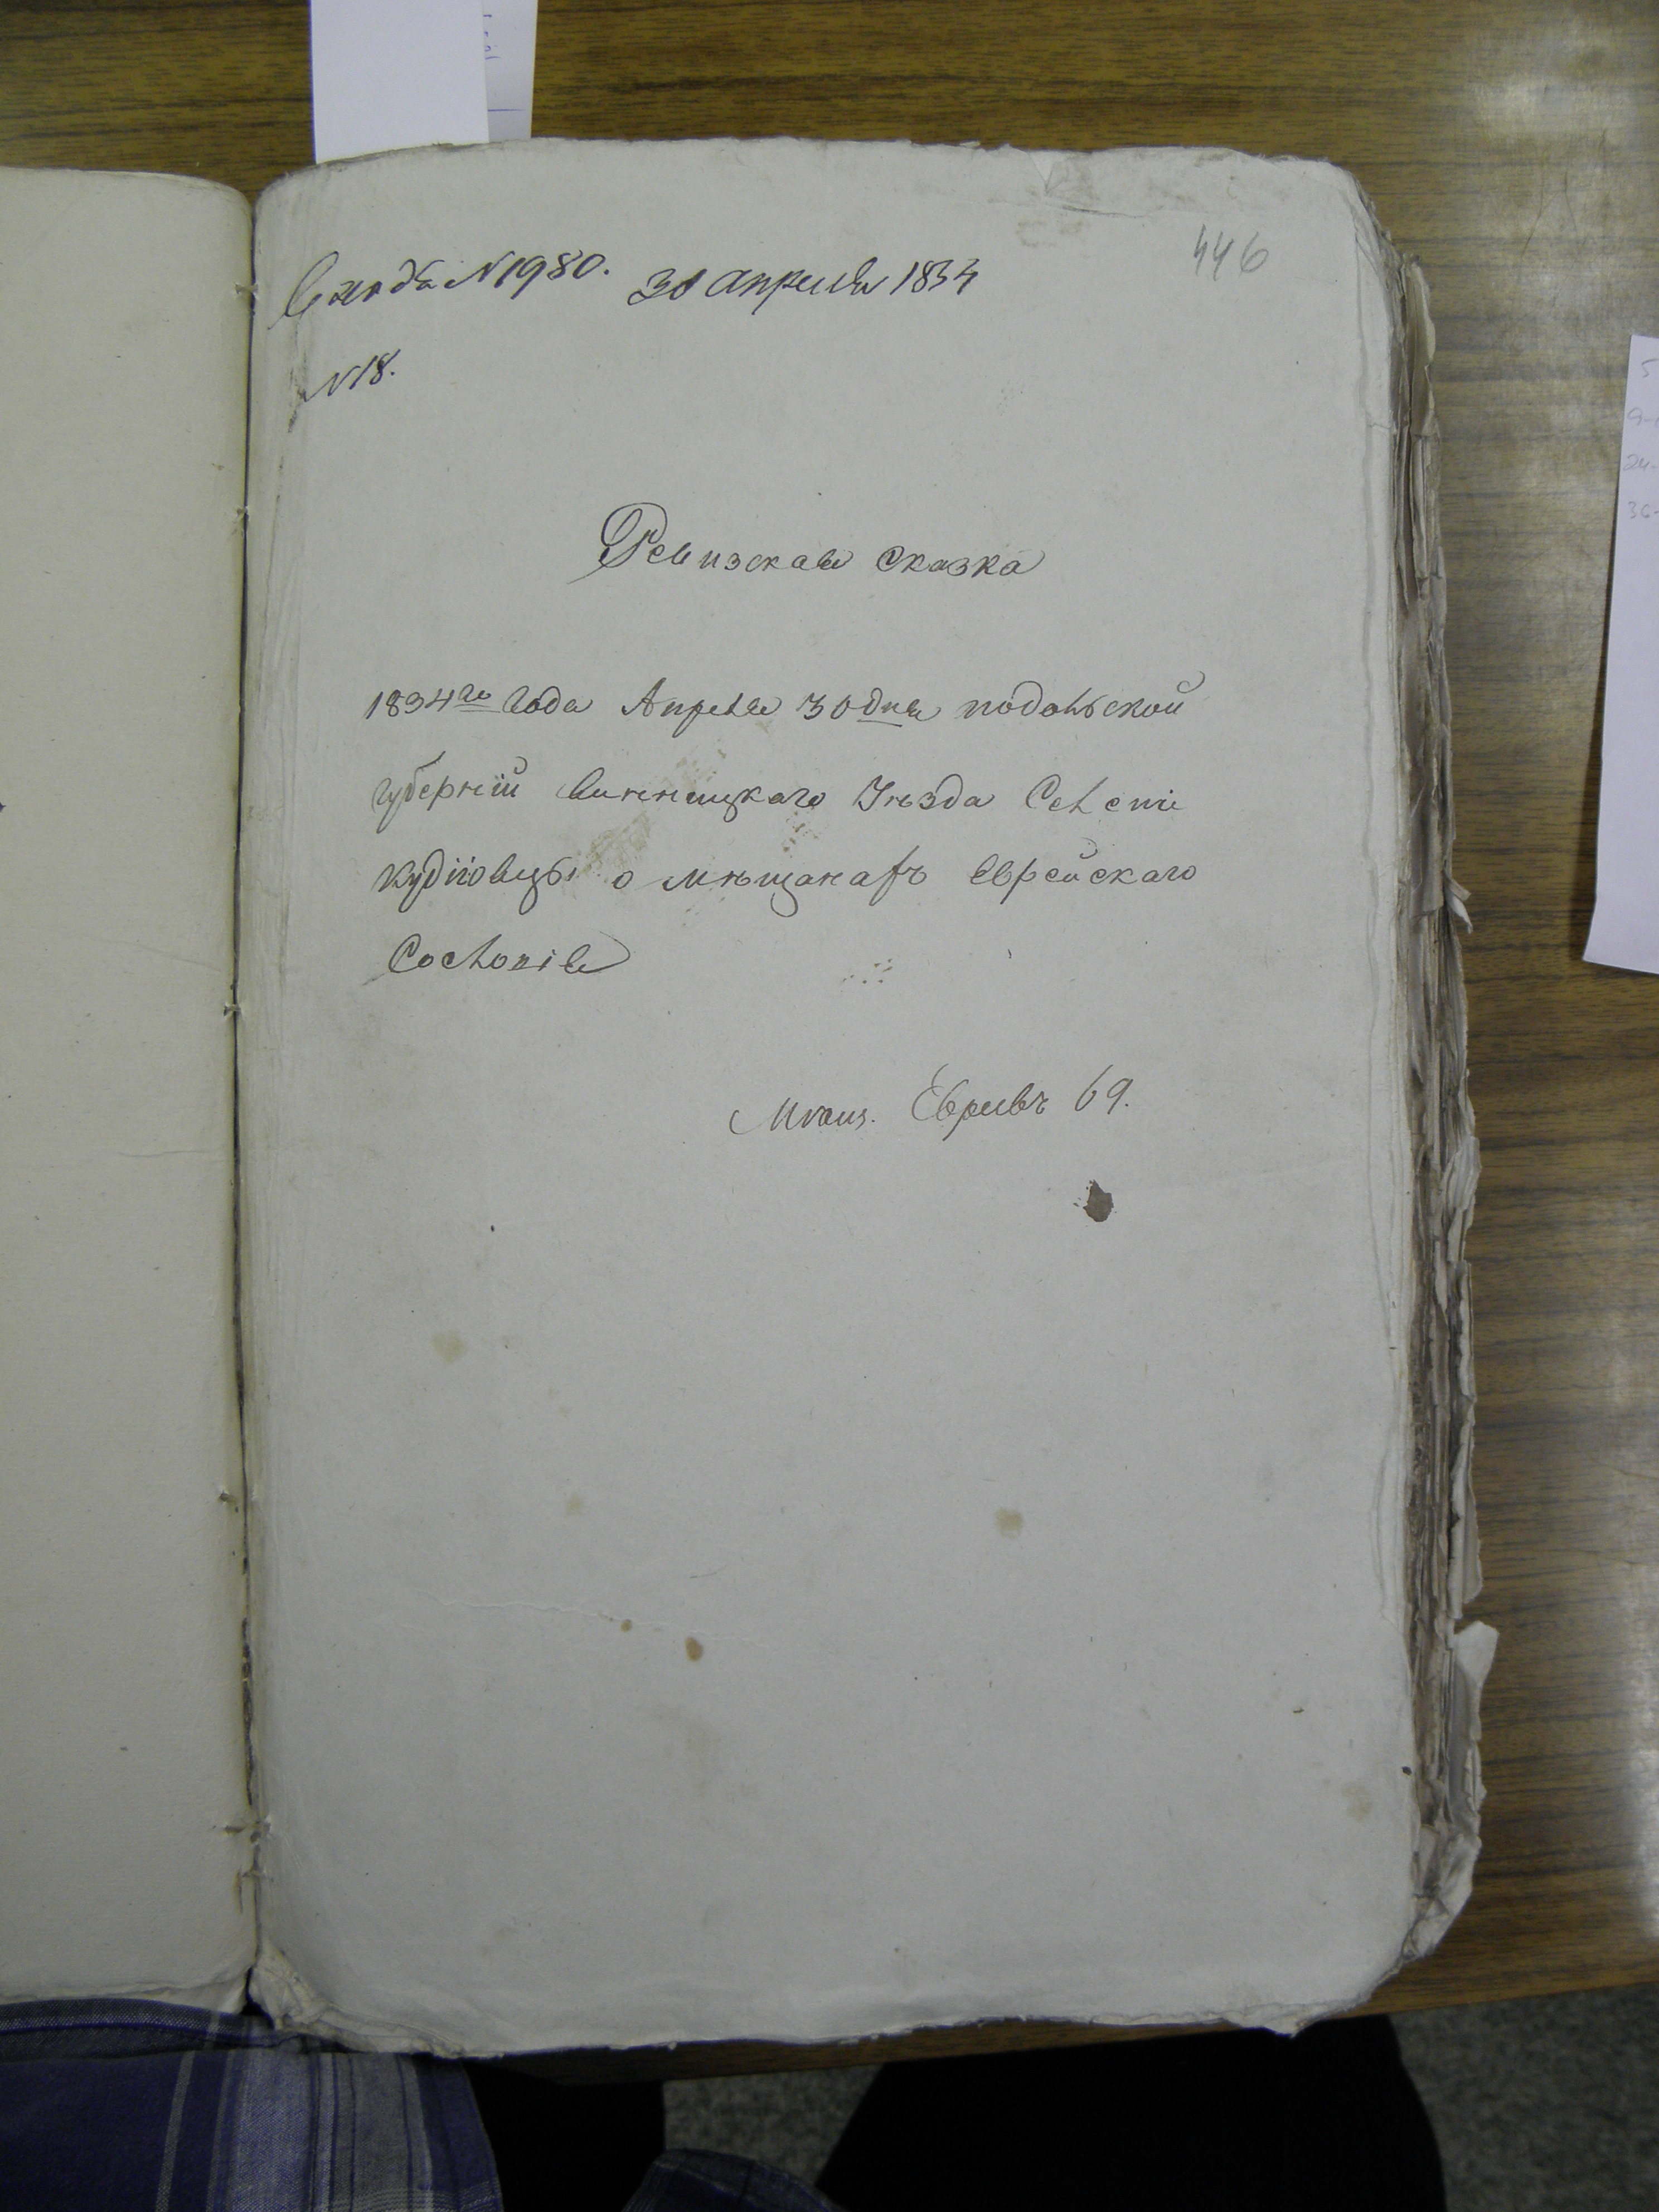 446
Входъ N1980. 30 Апреля 1834
N18.
Ревизская Сказка
1834го Года Апреля 30 дня подольской
губерніи винницкаго Уѣзда Селеніе
Кудіовцы о мѣщанахъ Еврейскаго
Сословія
Евреевъ 69.